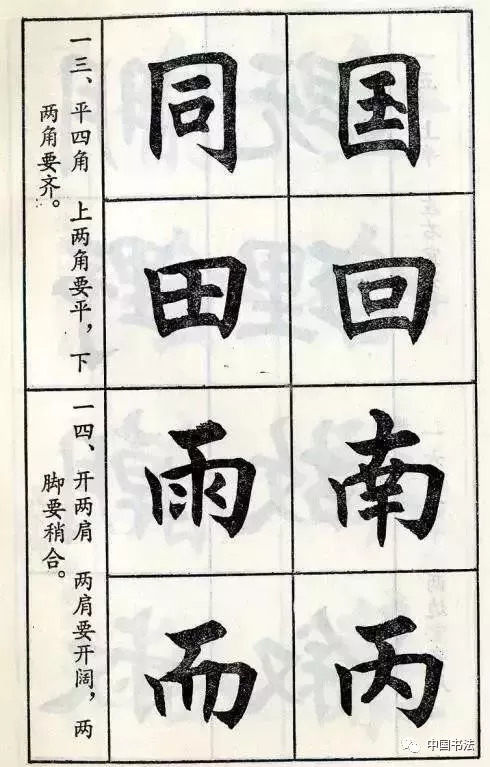 国回
同田
一三、平四角 上两角要平，下
两角要齐。
南丙
雨而
一四、开两肩 两肩要开阔，两
脚要稍合。
中国书法